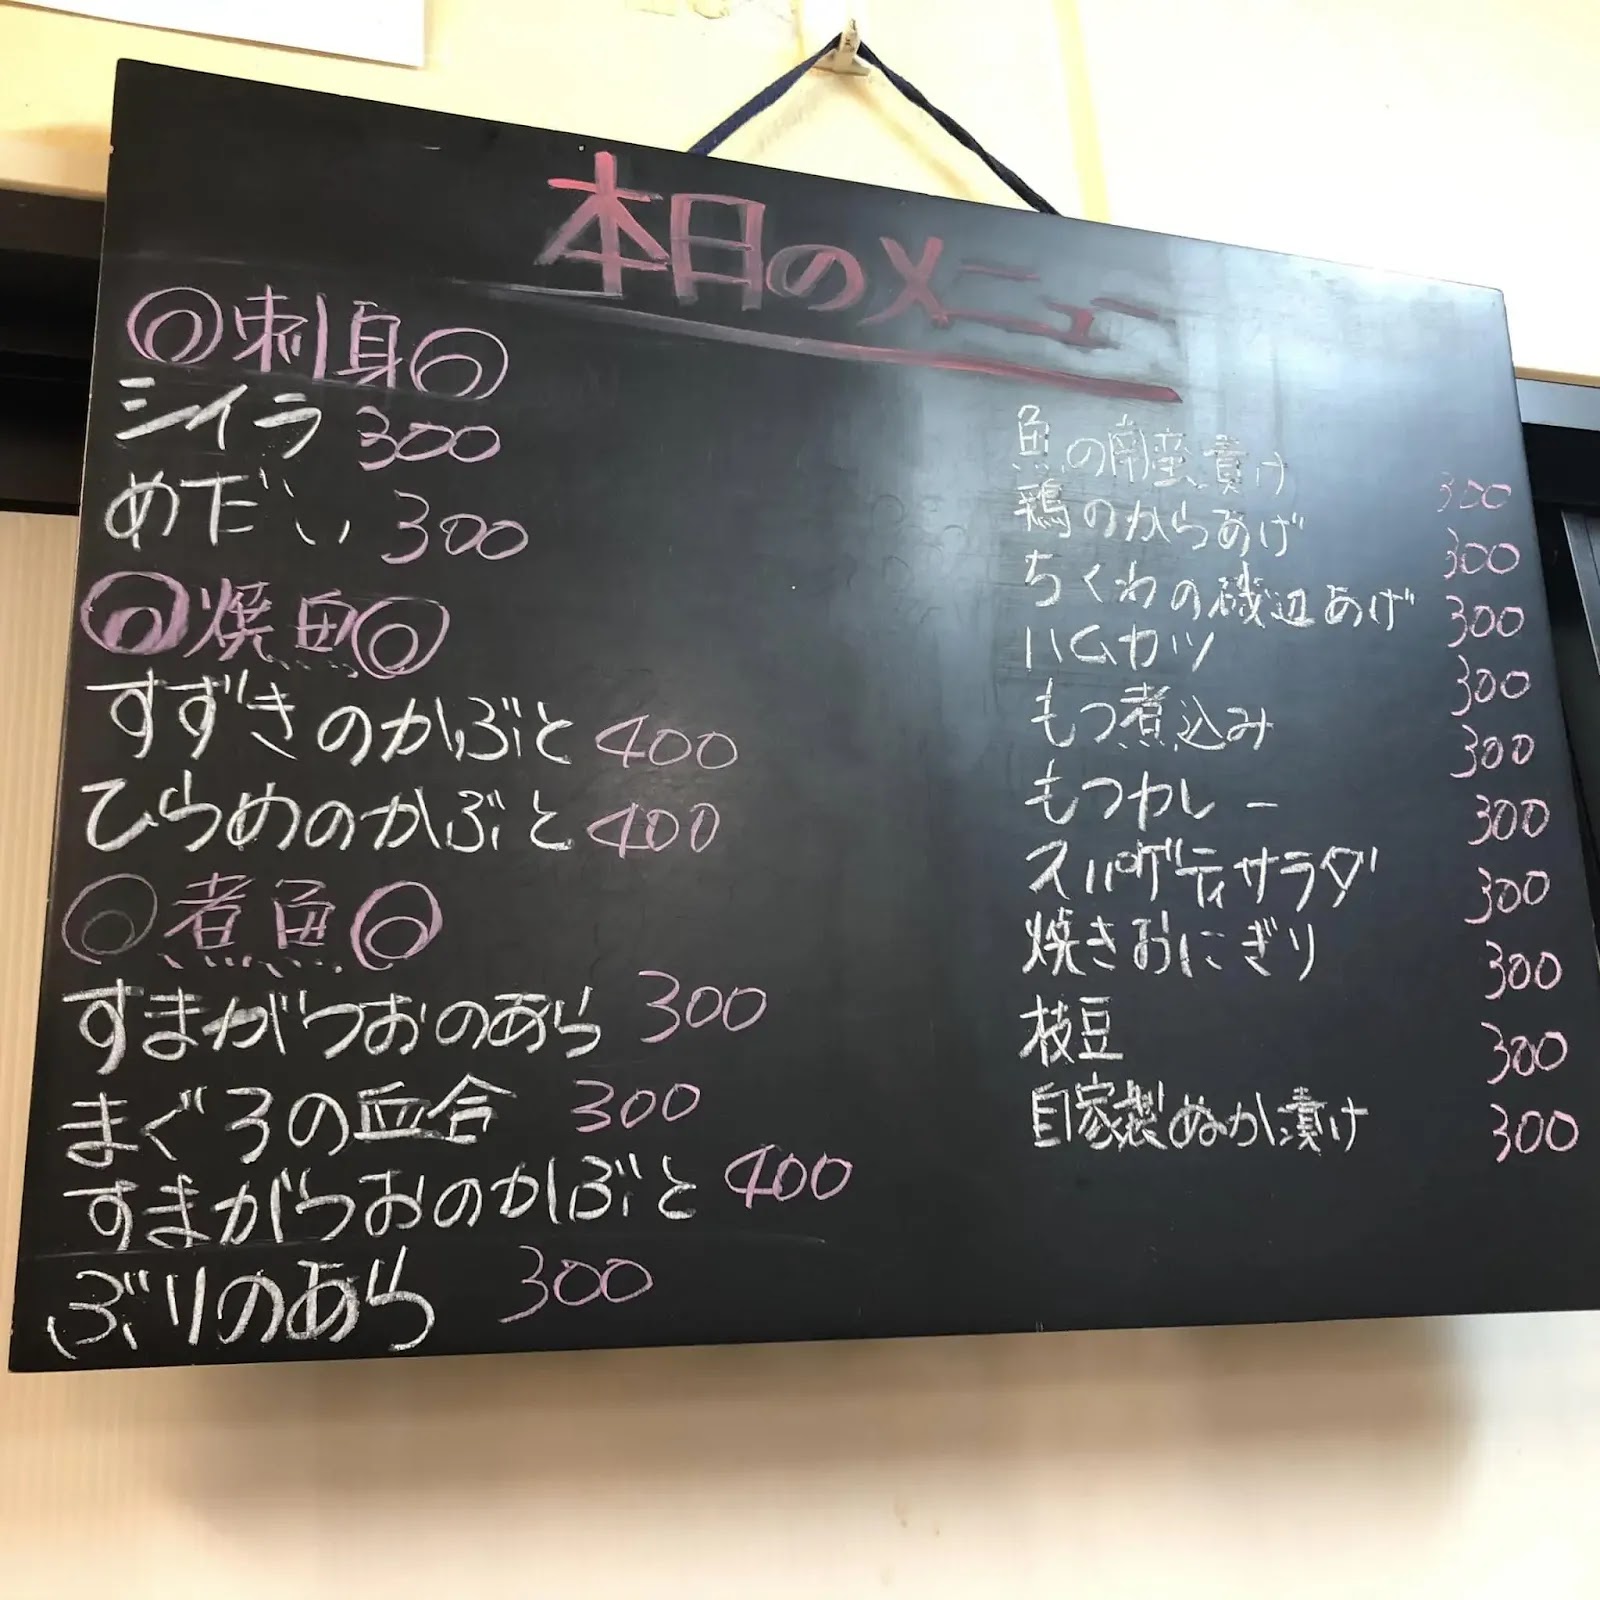 本日のメニュー
◎刺身◎
シイラ 300
めだい 300
◎焼魚◎
すずきのかぶと 400
ひらめのかぶと 400
◎煮魚◎
すまがつおのあら 300
まぐろの血合 300
すまがつおのかぶと 400
ぶりのあら 300
魚の南蛮漬け 300
鶏のからあげ 300
ちくわの磯辺あげ 300
ハムカツ 300
もつ煮込み 300
もつカレー 300
スパゲティサラダ 300
焼きおにぎり 300
枝豆 300
自家製ぬか漬け 300